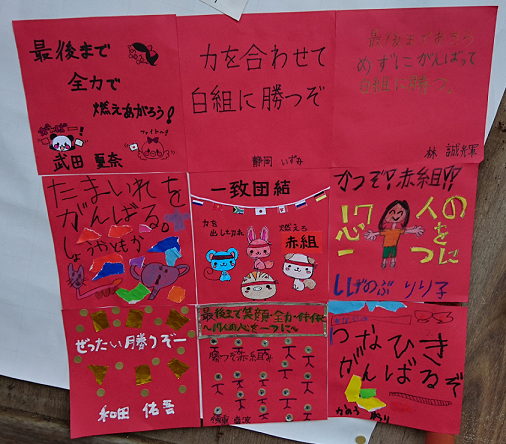 最後まで
全力で
燃えあがろう!
がんばー!
ファイトー!
武田 夏奈
力を合わせて
白組に勝つぞ
静岡 いずみ
最後まであきら
めずにがんばって
白組に勝つ。
林 誠輝
たまいれを
がんばる。
一致団結
力を
出しきれ
燃えろ
赤組
かつぞ!赤組!!
17人の
心を
一つに
しげのぶ りり子
ぜったい勝うぞー
和田 佑吾
最後まで笑顔・全力
〜17人の心を一つに〜
勝つぞ赤組
つなひき
がんばるぞ